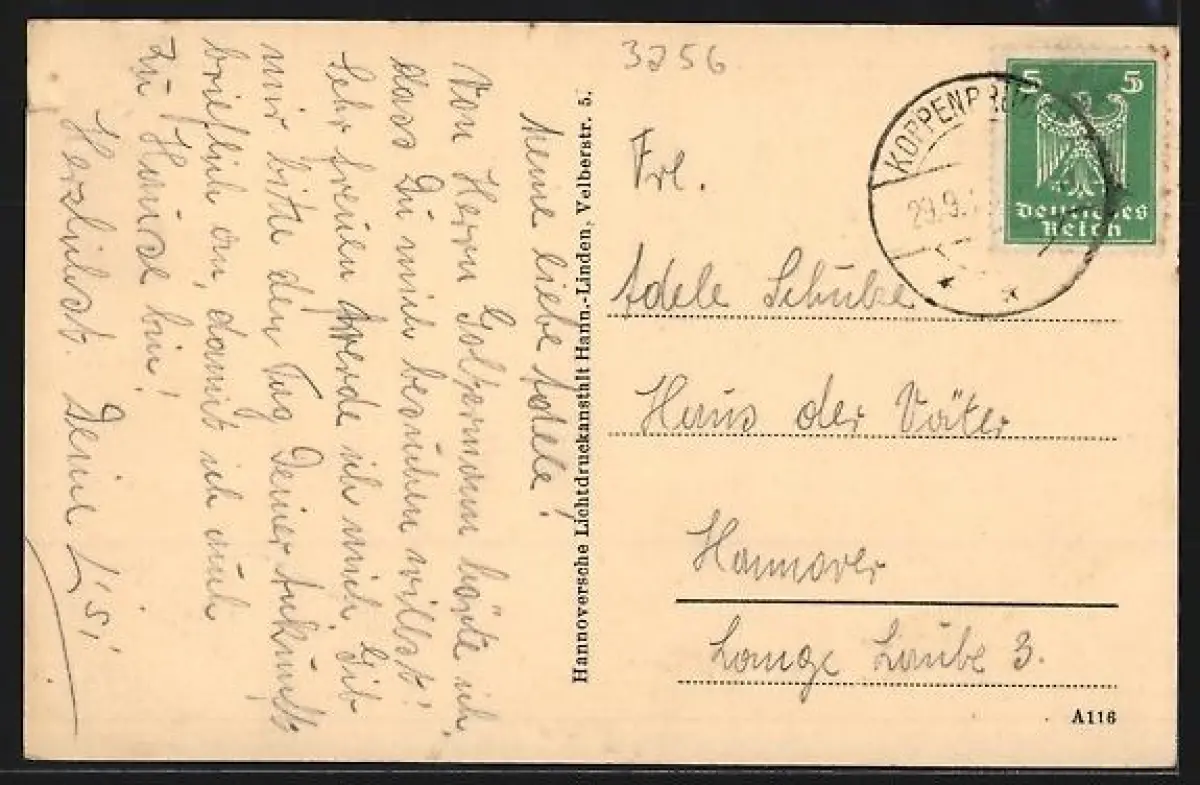 3256
Meine liebe Adele!
Von Herrn Golbermann hörte ich,
dass Du mich besuchen willst!
Sehr freuen werde ich mich. Gib
mir bitte den Tag Deiner Ankunft
brieflich an, damit ich auch
zu Hause bin!
Herzlichst. Deine
Hannoversche Lichtdruckanstalt Hann.-Linden, Velberstr. 5.
KOPPENBRÜ
29.9.
5 5
Deutsches
Reich
Frl.
Adele Schulze
Haus der Väter
Hannover
Lange Laube 3.
A116